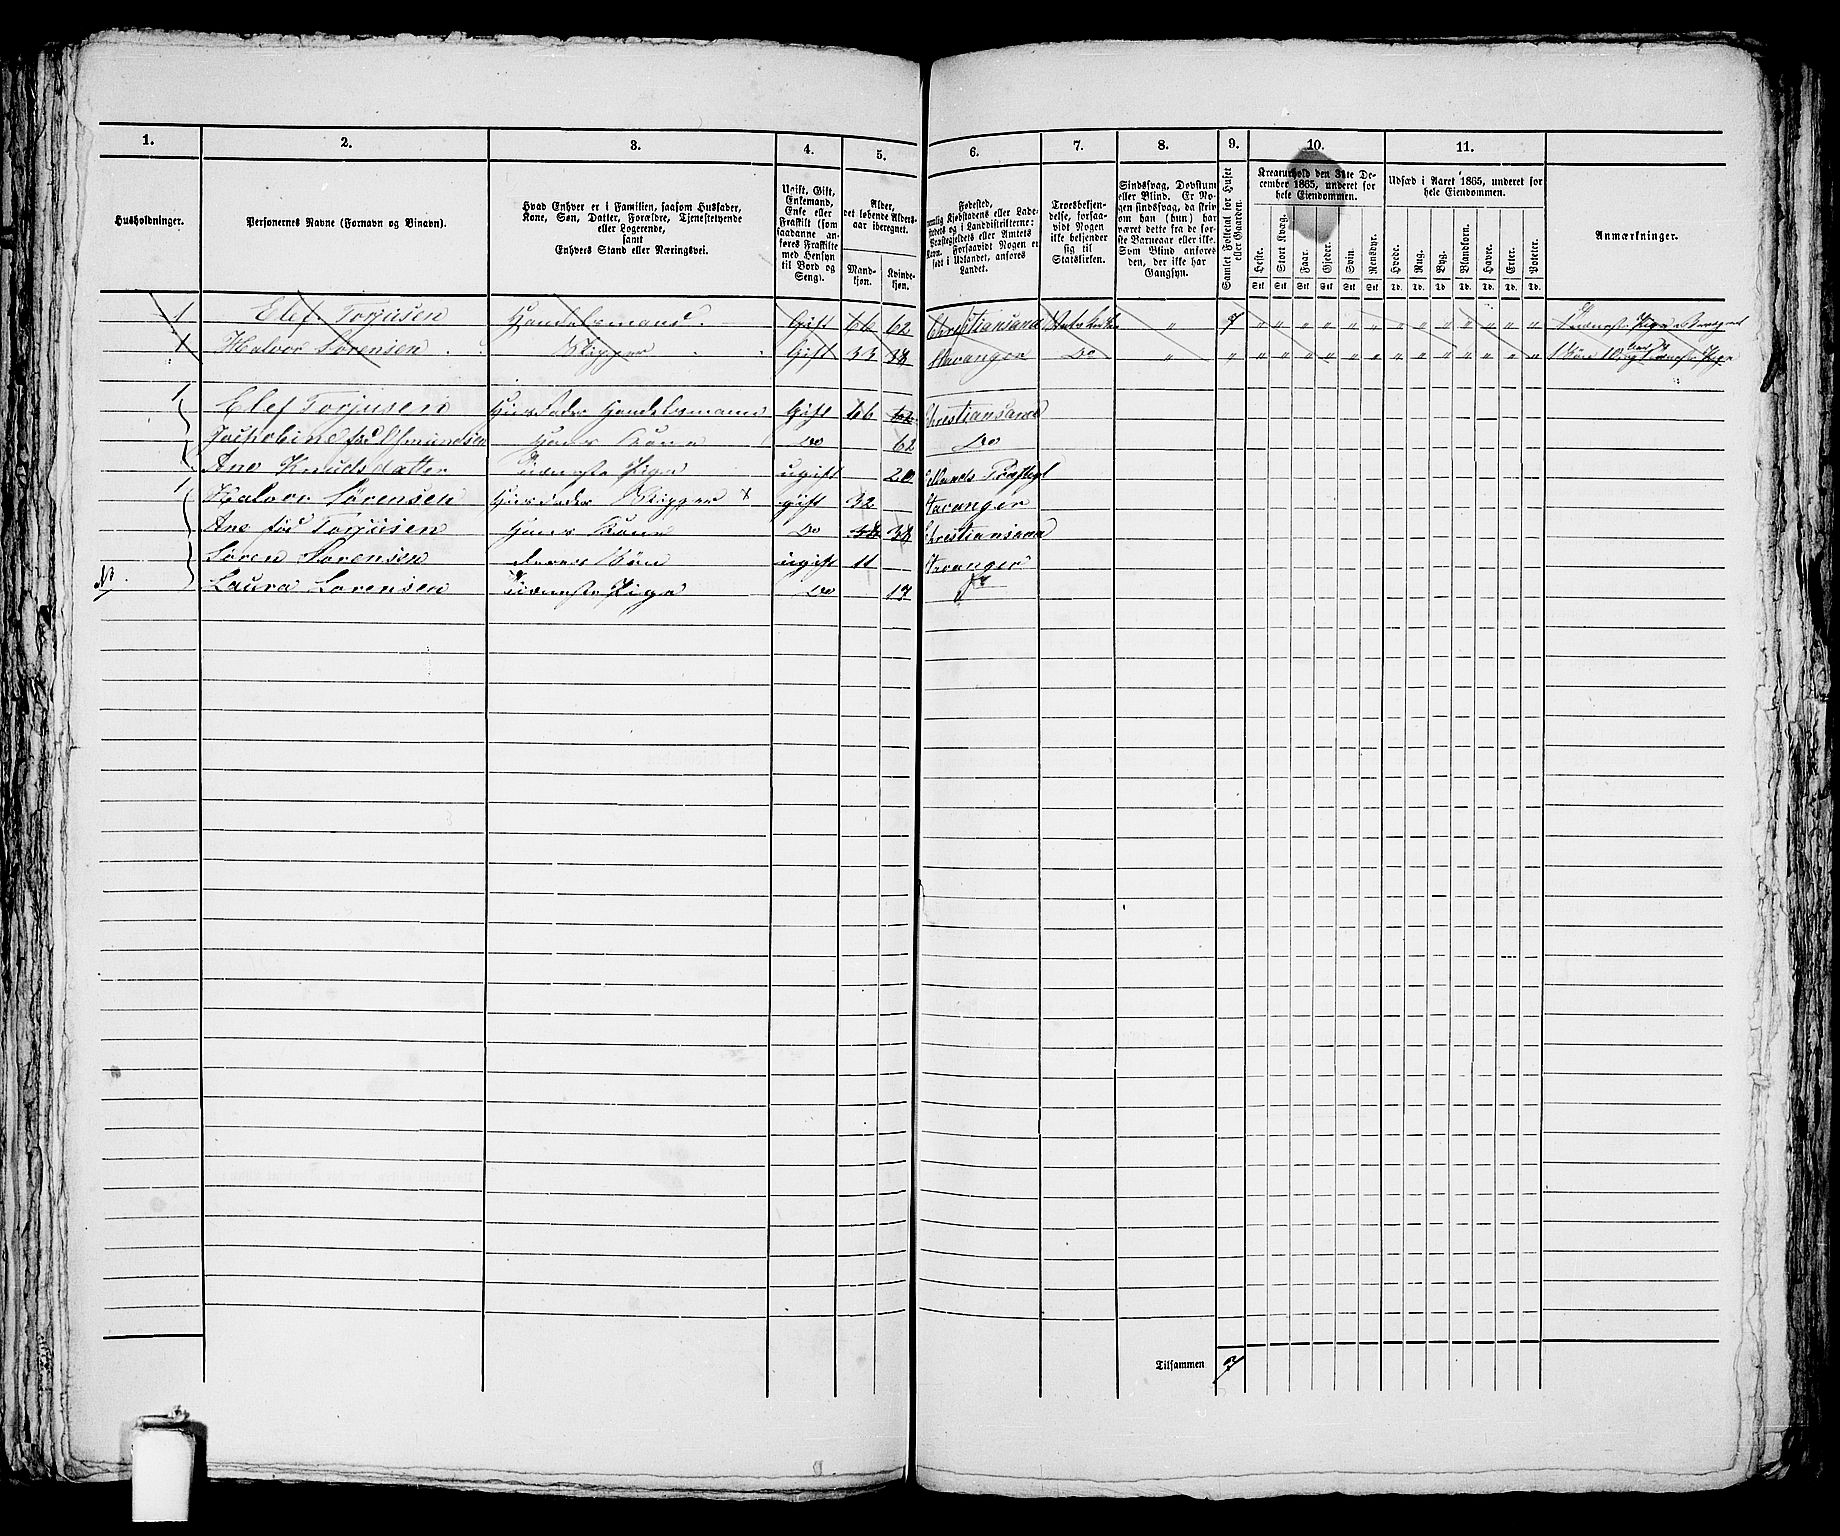 1. 2. 3. 4. 5. 6. 7. 8. 9. 10. 11.
Husholdninger.
Personernes Navne (Fornavn og Binavn).
Hvad Enhver er i Familien, saasom Husfader,
Kone, Søn, Datter, Forældre, Tjenestetyende
eller Logerende,
samt
Enhvers Stand eller Næringsvei.
Ugift, Gift,
Enkemand,
Enke eller
Fraskilt (som
saadanne an-
føres Fraskilte
med Hensyn
til Bord og
Seng).
Alder,
det løbende Alders-
aar iberegnet.
Mand-
kjøn.
Kvinde-
kjøn.
Fødested,
nemlig Kjøbstadens eller Lade-
stedets og i Landdistrikterne:
Præstegjeldets eller Amtets
Navn. Forsaavidt Nogen er
født i Udlandet, anføres
Landet.
Troesbekjen-
delse, forsaa-
vidt Nogen
ikke bekjender
sig til
Statskirken.
Sindssvag, Døvstum
eller Blind. Er No-
gen sindssvag, da skri-
ves om han (hun) har
været dette fra de før-
ste Barneaar eller ikke.
Som Blind anføres
den, der ikke har
Gangsyn.
Samlet Folketal for Huset
eller Gaarden.
Kreaturhold den 31te De-
cember 1865, underet for
hele Eiendommen.
Heste. Stort Kvæg. Faar. Gjeder. Svin. Rensdyr.
Stk Stk Stk Stk Stk Stk
Udsæd i Aaret 1865, underet for
hele Eiendommen.
Hvede. Rug. Byg. Blandkorn. Havre. Erter. Poteter.
Td. Td. Td. Td. Td. Td. Td.
Anmærkninger.
1 Elef Torjusen Handelsmand. Gift 66 62 Christiansand 7 " " " " " " " " " " " " " Tieneste Pige
1 Halvor Sørensen Skipper Gift 33 18 Stavanger Do " " " " " " " " " " " " " " " 1 Søn 10 Aar Tieneste Pige
1 Elef Torjusen Huusfader Handelsmann Gift 66 62 Christiansand
født Osmundsen Hans Kone Do 62 Do
Ane Knudsdatter Tieneste Pige ugift 20
1 Halvor Sørensen Huusfader Skipper x gift 32 Stavanger
Ane fød Torjusen Hans Kone Do 38 38 Christiansand
Søren Sørensen deres Søn ugift 11 Stavanger
Laura Sorensen Tieneste Pige Do 17
Tilsammen 7